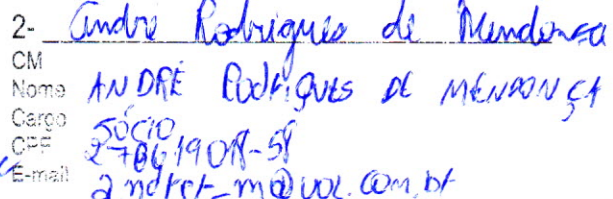 2- André Rodrigues de Mendonça
CM
Nome ANDRÉ RODRIGUES DE MENDONÇA
Cargo SÓCIO
CPF
E-mail